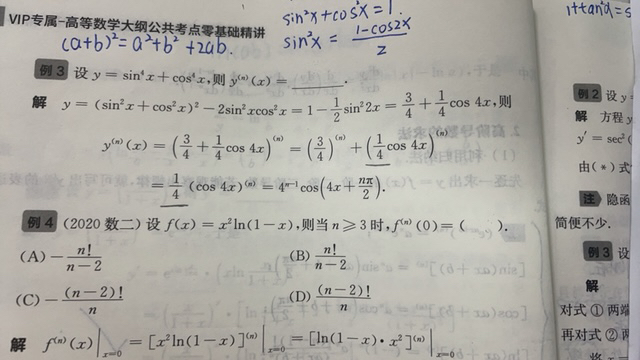 sin²x+cos²x=1.
1+tan²α=s
VIP专属-高等数学大纲公共考点零基础精讲
(a+b)²=a²+b²+2ab.
sin²x = \frac{1-cos2x}{2}
例 3 设 y = sin⁴x + cos⁴x,则 y⁽ⁿ⁾(x) = ______.
解 y = (sin²x + cos²x)² − 2sin²xcos²x = 1 − \frac{1}{2}sin²2x = \frac{3}{4} + \frac{1}{4}cos 4x,则
y⁽ⁿ⁾(x) = (\frac{3}{4} + \frac{1}{4}cos 4x)⁽ⁿ⁾ = (\frac{3}{4})⁽ⁿ⁾ + (\frac{1}{4}cos 4x)⁽ⁿ⁾
= \frac{1}{4}(cos 4x)⁽ⁿ⁾ = 4ⁿ⁻¹cos(4x + \frac{nπ}{2}).
例 4 (2020 数二) 设 f(x) = x²ln(1−x),则当 n ≥ 3 时,f⁽ⁿ⁾(0) = ( ).
(A) −\frac{n!}{n−2} (B) \frac{n!}{n−2}
(C) −\frac{(n−2)!}{n} (D) \frac{(n−2)!}{n}
解 f⁽ⁿ⁾(x)|ₓ₌₀ = [x²ln(1−x)]⁽ⁿ⁾|ₓ₌₀ = [ln(1−x)·x²]⁽ⁿ⁾|ₓ₌₀
例 2 设 y
解 方程
y′ = sec²(
由(*)式
注 隐函
简便不少.
例 3 设
解
对式 ① 两端
再对式 ② 两